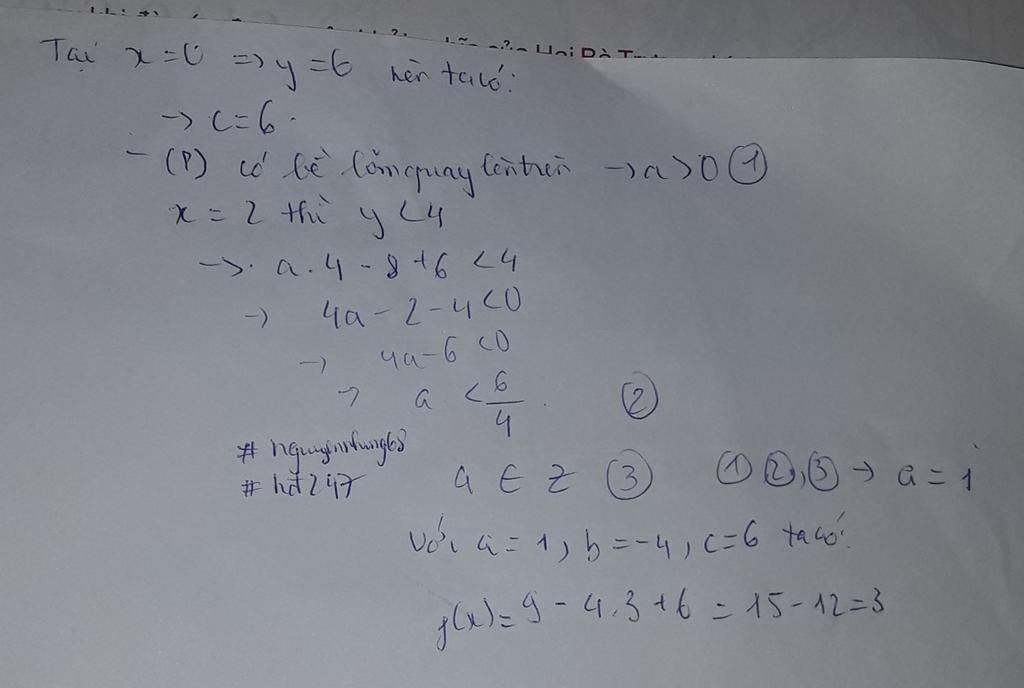 Tại x=0 => y=6 nên ta có:
-> c=6.
- (P) có bề lõm quay lên trên -> a>0 ①
x = 2 thì y <4
->. a.4 - 8 +6 <4
-> 4a - 2 - 4 <0
-> 4a-6 <0
-> a < 6/4. ②
# nguyennhung68
# hđ247
a ∈ Z ③ ① ②,③ -> a = 1
Với a=1, b=-4, c=6 ta có:
f(x)=9 - 4.3 +6 = 15-12=3